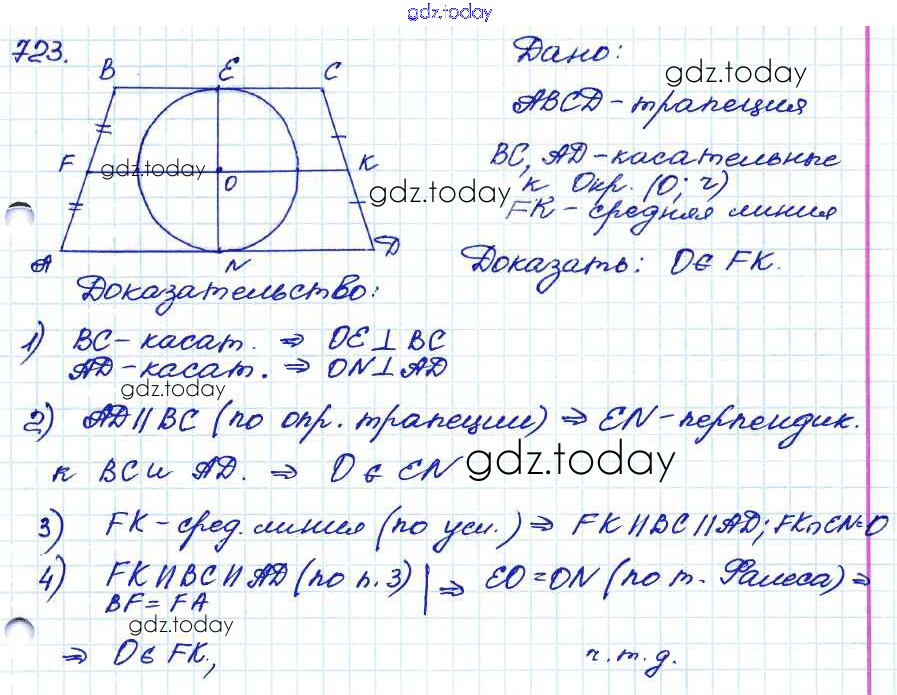 gdz.today
723.
B E C
F K
O
A N D
gdz.today
gdz.today
Дано:
gdz.today
ABCD - трапеция
BC, AD - касательные
к Окр. (O; r)
FK - средняя линия
Доказать: O∈ FK.
Доказательство:
1) BC - касат. ⇒ OE⊥BC
AD - касат. ⇒ ON⊥AD
gdz.today
2) AD∥BC (по опр. трапеции) ⇒ EN - перпендик.
к BC и AD. ⇒ O∈EN
gdz.today
3) FK - сред. линия (по усл.) ⇒ FK∥BC∥AD; FK∩EN=O
4) FK∥BC∥AD (по п. 3) | ⇒ EO=ON (по т. Фалеса) ⇒
BF = FA
gdz.today
⇒ O∈ FK, ч.т.д.